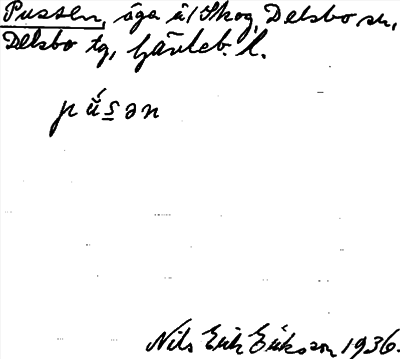 Pussen, äga å / Skog, Delsbo sn,
Delsbo tg, Gävleb. l.
pú̇s̲ən
Nils Erik Eriksson 1936.